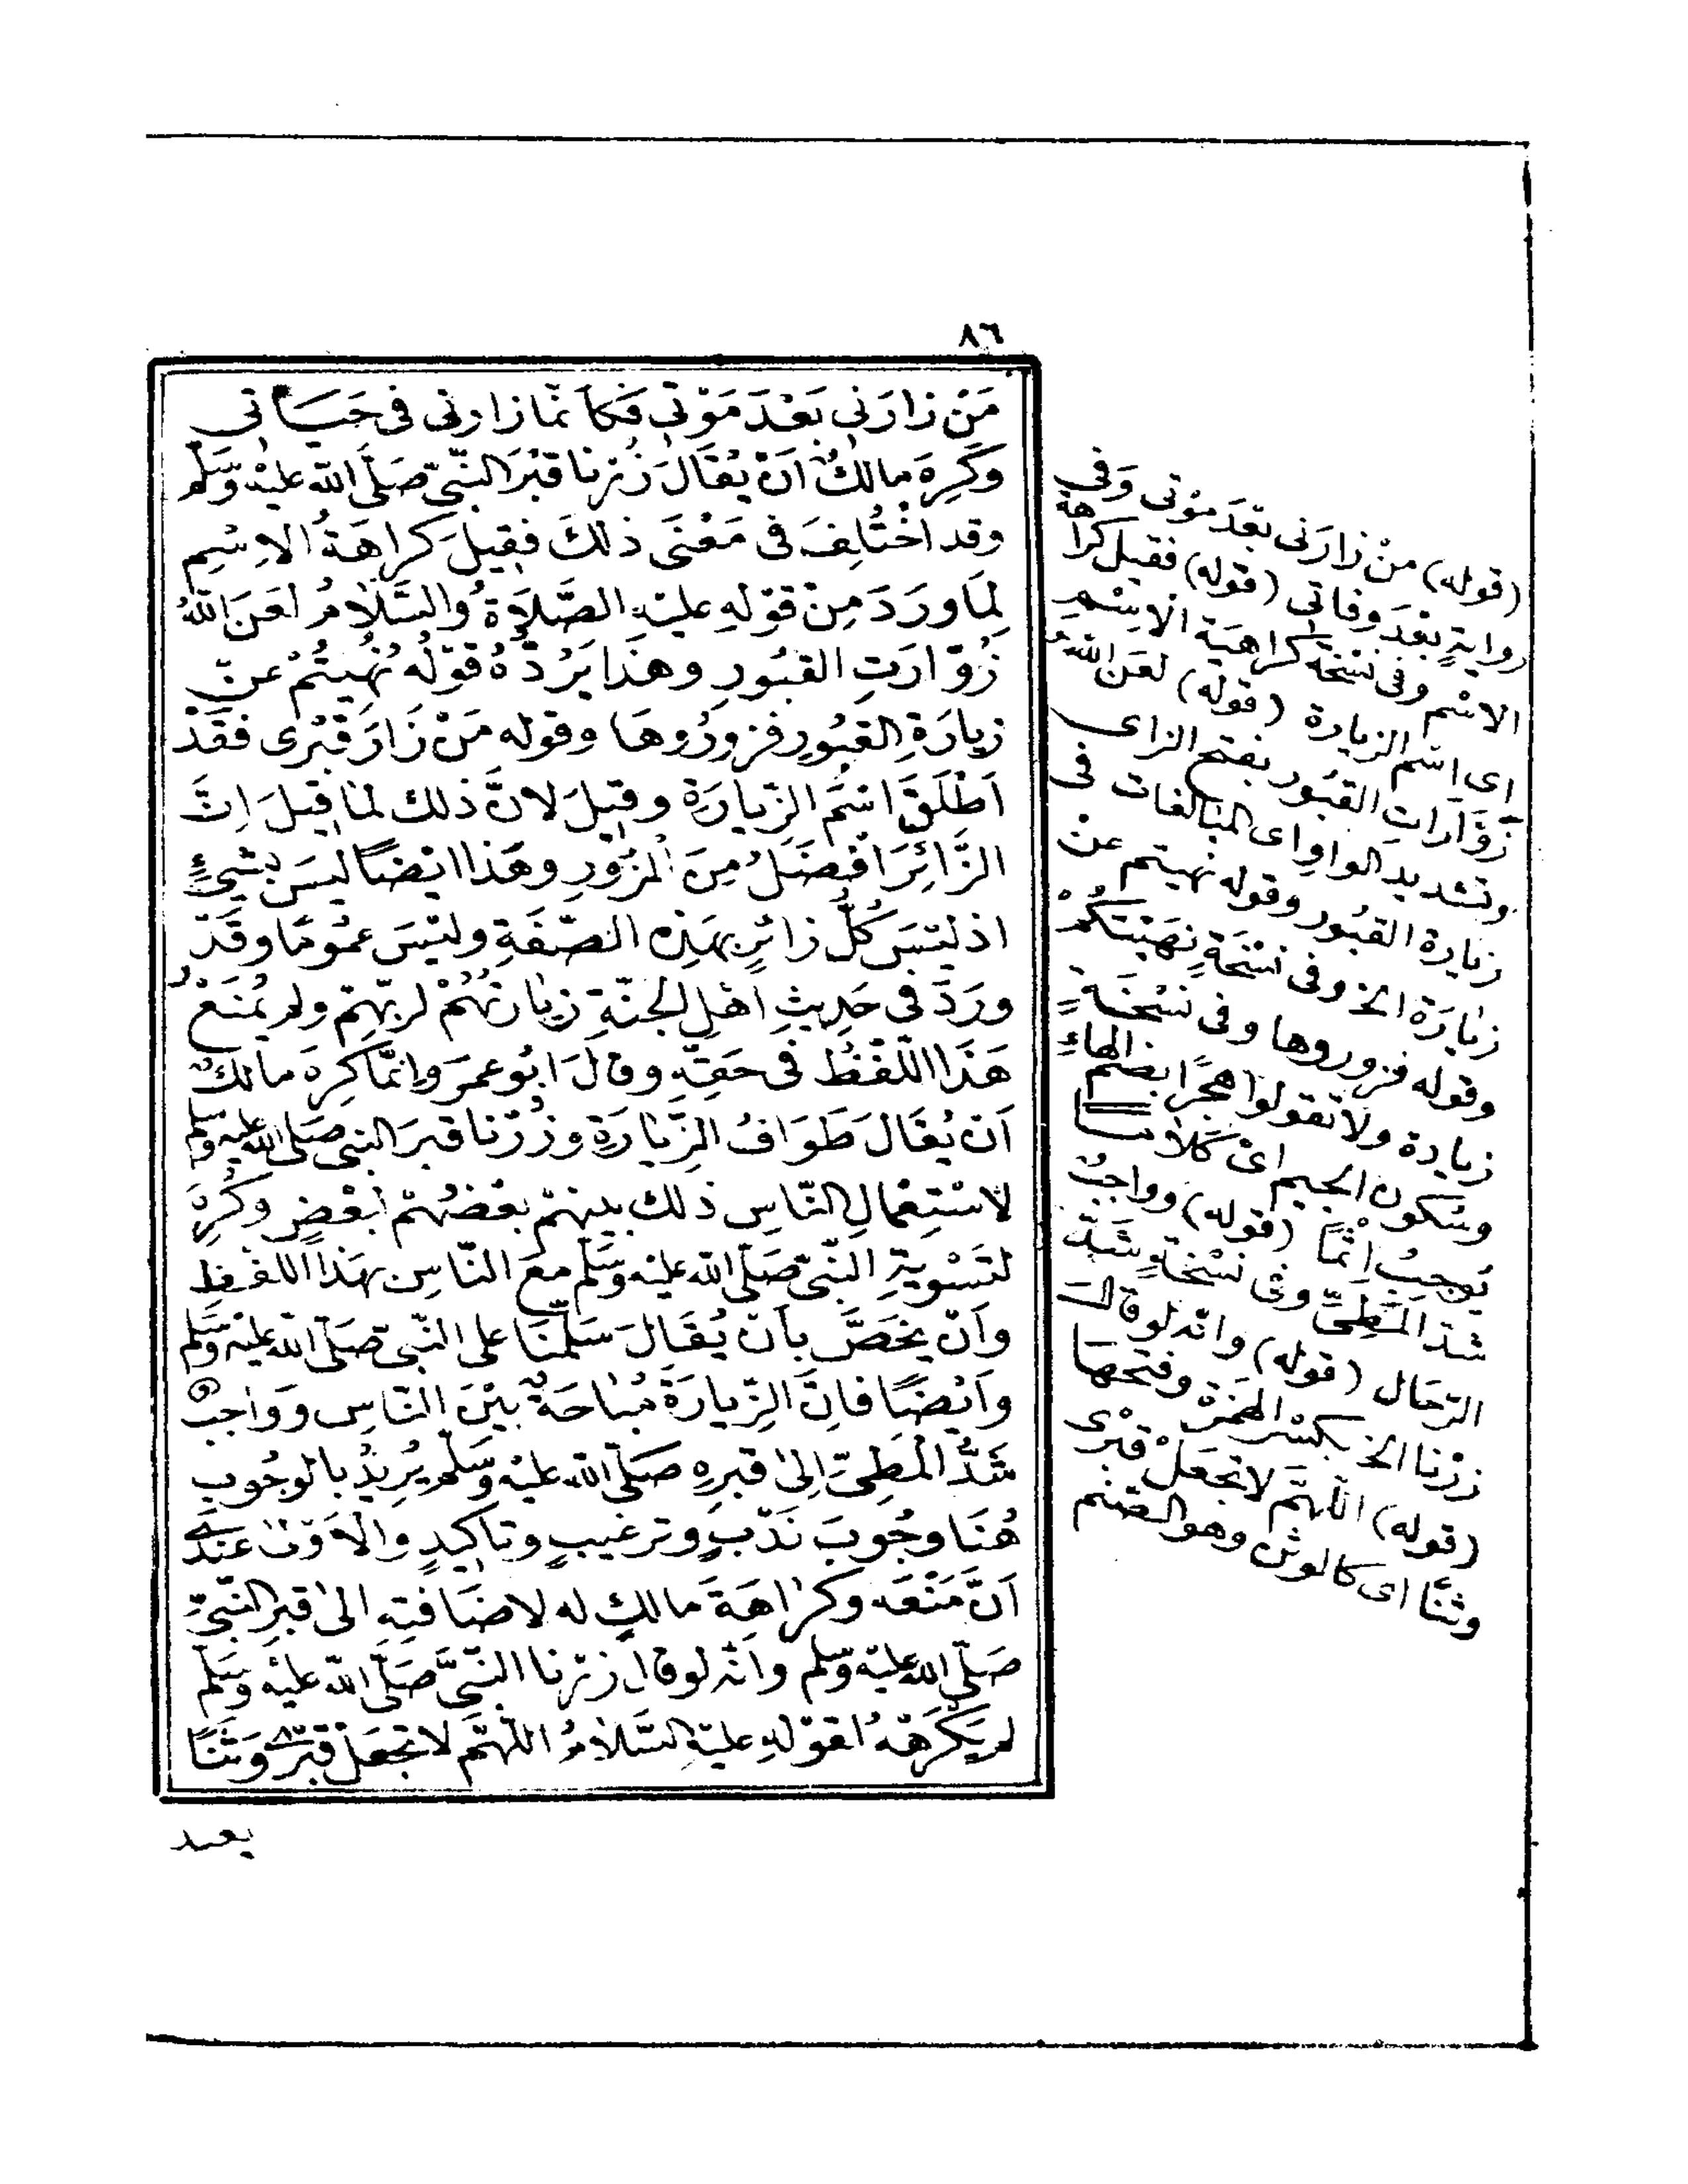 ٨٦
مَنْ زارَنى بَعْدَ مَوْتى فَكَأَنَّما زارنى فى حَيَاتى
وَكَرِهَ مالكٌ اَنْ يُقَالَ زُرْنا قَبْرَ النَّبىِّ صَلَّى اللّٰه عليْه وَسَلَّم
وقد اخْتُلِفَ فى مَعْنَى ذلكَ فقِيلَ كراهَةُ الاسْمِ
لِمَا وَرَدَ مِنْ قوْلهِ عليْهِ الصَّلَاةُ والسَّلَامُ لعَنَ اللّٰهُ
زُوَّارَتِ القبُورِ وهَذا يَرُدُّهُ قوْلُه نُهِيتُمْ عن
زيارَةِ القبُورِ فزورُوهَا وقوله مَنْ زَارَ قبْرى فقَدْ
اَطْلَقَ اسْمَ الزِّيارَةِ وقيلَ لانَّ ذلك لما قيلَ اِنَّ
الزَّائِرَ افْضَلُ مِنَ المَزُورِ وهَذا ايْضًا ليسَ بشىْءٍ
اذ ليْسَ كُلُّ زائرٍ بهَذِه الصّفَةِ وليْسَ عمُومًا وقَدْ
ورَدَ فى حَدِيثِ اَهْلِ الجنَّةِ زيارتُهُمْ لربّهِمْ ولم يُمْنَعْ
هَذَا اللّفْظُ فى حَقّهِ وقالَ ابُو عمرَ وانَّما كرِهَ مالكٌ
اَنْ يُقَالَ طَوَافُ الزِّيارَةِ وزُرْنا قبرَ النبى صَلى اللّٰه عليه وسلم
لاسْتِعْمالِ النَّاسِ ذلك بينهمْ بعْضُهُمْ لبَعْضٍ وكُرِهَ
لتَسْويةِ النَّبىّ صَلَّى اللّٰه عليْه وَسَلَّم معَ النَّاسِ بهَذا اللفْظِ
واَنْ يخَصَّ بأنْ يُقَالَ سَلَّمْنَا على النَّبىِّ صَلّى اللّٰه عليْه وسَلَّم
وايْضًا فانَّ الزِّيارَةَ مُبَاحَةٌ بيْنَ النَّاسِ وَوَاجبٌ
شَدُّ المَطِىِّ اِلىٰ قبرِهِ صَلَّى اللّٰه عليْه وَسَلَّم يُرِيدُ بالوجُوبِ
هُنَا وجُوبَ نَدْبٍ وترغيبٍ وتاكِيدٍ والاَوْلىٰ عنْدِى
اَنَّ مَنْعَه وكرَاهَةَ مالكٍ له لاضَافَتِه الىٰ قبرِ النَّبىِّ
صَلَّى اللّٰه عليْه وسَلَّم وانّه لو قال زرْنا النَّبىَّ صَلَّى اللّٰه عليْه وسَلَّم
لم يَكْرَهْهُ لقوْلهِ عليْهِ السَّلَامُ اللّٰهُمَّ لا تجْعَلْ قبْرى وَثَنًا
يعبد
(قوله) منْ زارَنى بعْدَ موْتى وَفى
روايةٍ بعْدَ وفاتى (قوله) فقيل كراهة
الاسْم وفى نسْخَة كراهية الاسْمِ
اى اسْم الزيارة (قوله) لعَن اللّٰهُ
زَوَّارات القبُور بفتح الزاى
وتشديد الواو اى المبالغات فى
زيارة القبُور وقوله نهيتم عنْ
زيارَة الخ وفى نسْخَةٍ نهَيْتكُمْ
وقوله فزوروها وفى نسْخةٍ
زيادة ولا تقولوا هجْرًا بضم الهاءِ
وسُكون الجيم اىْ كلامًا
يُوجبُ اِثْمًا (قوله) وواجبٌ
شدّ المَطِىِّ وفى نسْخةٍ شَدّ
الرّحَال (قوله) وانّه لو قال
زرْنا الخ بكسْر الهمْزة وفتْحهَا
(قوله) اللّهمّ لا تجعَلْ قبْرى
وثنًا اى كالوثن وهو الصّنم